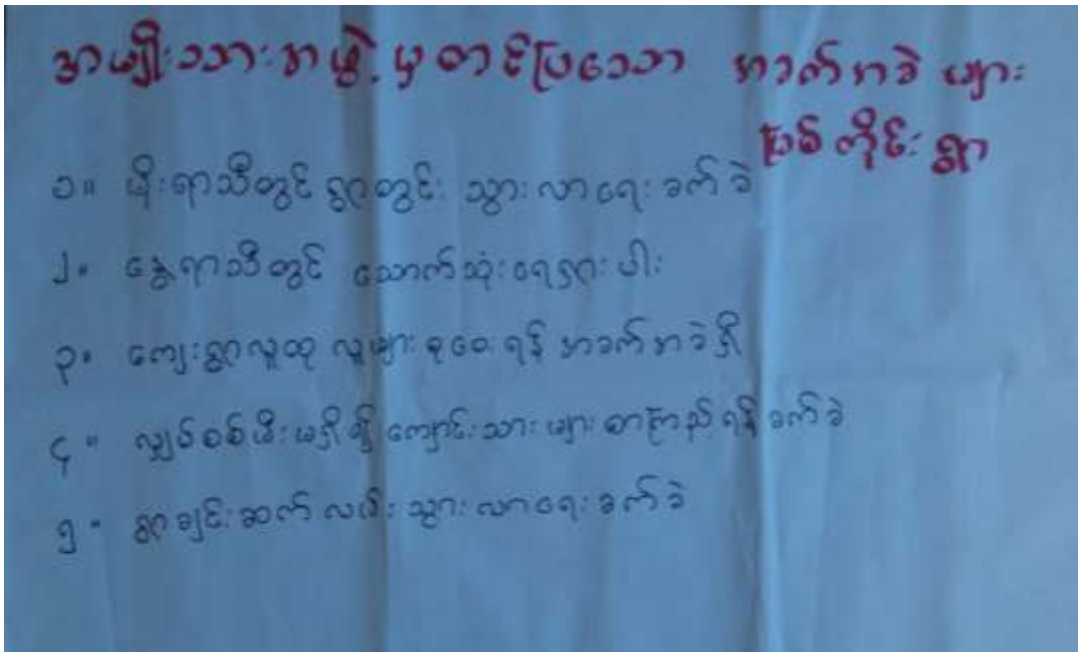 အမျိုးသားအဖွဲ့မှတင်ပြသော အခက်အခဲများ
မြစ်တိုင်းရွာ
၁။ မိုးရာသီတွင် ရွာတွင်း သွားလာရေးခက်ခဲ
၂။ နွေရာသီတွင် သောက်သုံးရေရှားပါး
၃။ ကျေးရွာလူထု လူများစုဝေးရန် အခက်အခဲရှိ
၄။ လျှပ်စစ်မီးမရှိ၍ ကျောင်းသားများ စာကြည့်ရန်ခက်ခဲ
၅။ ရွာချင်းဆက်လမ်း သွားလာရေးခက်ခဲ